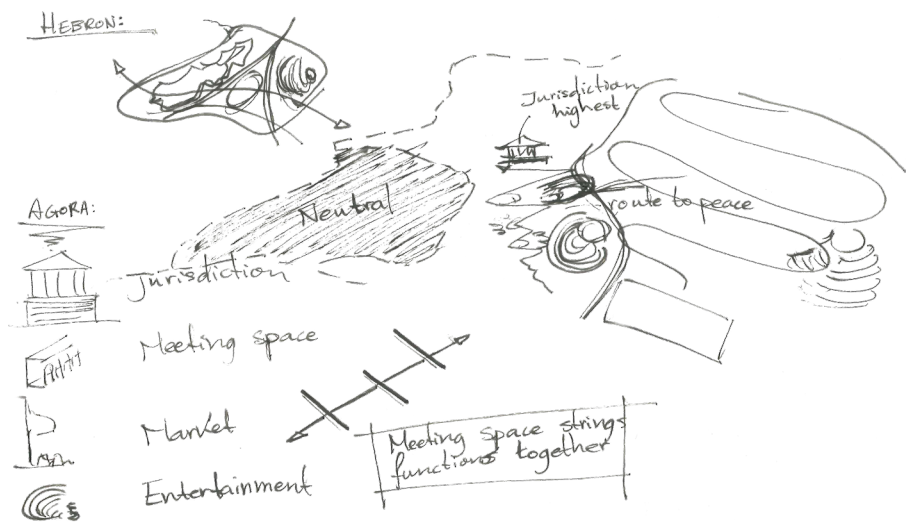 HEBRON:
Jurisdiction
highest
Neutral
route to peace
AGORA:
Jurisdiction
Meeting space
Market
Entertainment
Meeting space strings
functions together